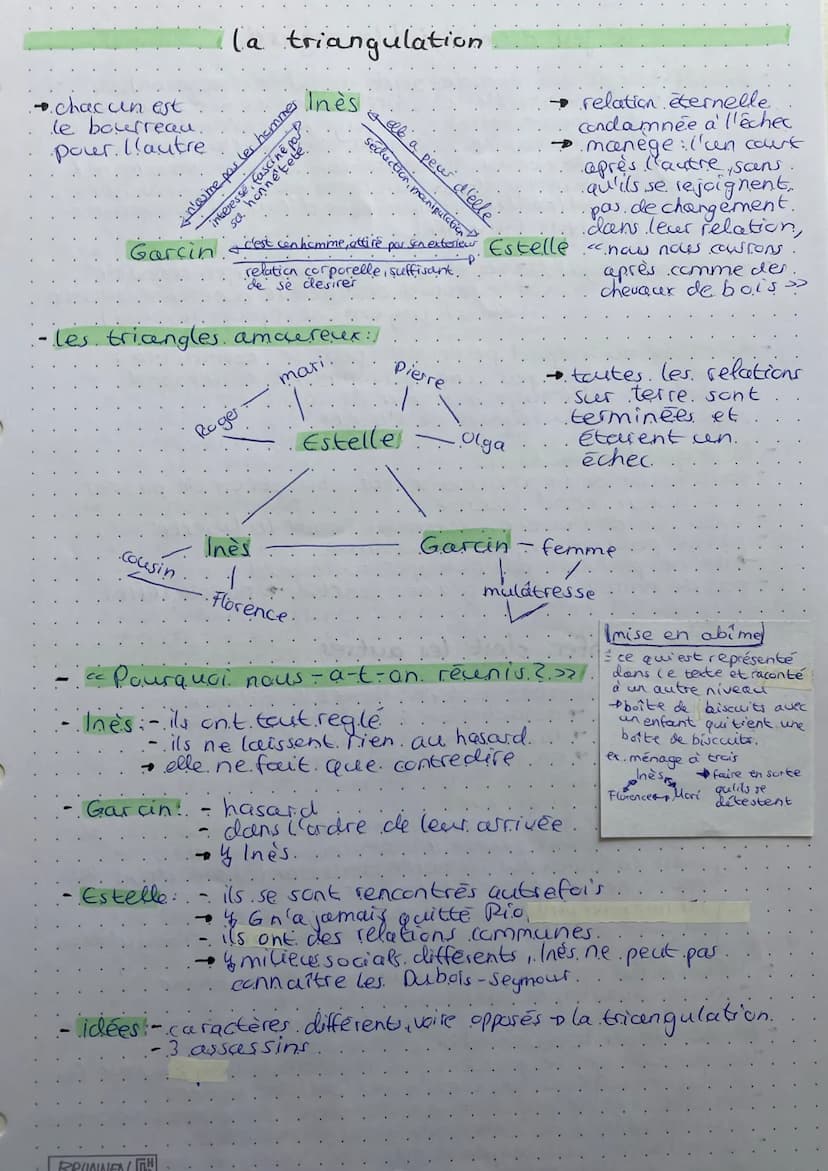 la triangulation
→ chacun est
le bourreau
pour l'autre
Inès
n'aime pas les hommes
interessé, fasciné par
sa honnêteté
elle a peur d'elle
séduction, manipulation
Garcin
c'est un homme, attiré par son exterieur
Estelle
relation corporelle, suffisant
de se désirer
→ relation éternelle
condamnée à l'échec
→ manège: l'un court
après l'autre, sans
qu'ils se rejoignent,
pas de changement
dans leur relation,
"nous nous courrons
après comme des
chevaux de bois >>
- les triangles amoureux:
mari
Roger
Pierre
Estelle
Olga
→ toutes les relations
sur terre sont
terminées et
étaient un
échec
Inès
Garcin - femme
cousin
Florence
mulâtresse
- << Pourquoi nous-a-t-on réunis? >>
- Inès: - ils ont tout reglé
- ils ne laissent rien au hasard
→ elle ne fait que contredire
- Garcin: - hasard
- dans l'ordre de leur arrivée
→ ↯ Inès
- Estelle: - ils se sont rencontrés autrefois
→ ↯ G n'a jamais quitté Rio
- ils ont des relations communes
→ ↯ milieux socials différents, Inès ne peut pas
connaître les Dubois-Seymour
- idées: - caractères différents, voire opposés → la triangulation
- 3 assassins
mise en abîme
= ce qui est représenté
dans le texte et raconté
à un autre niveau
→ boîte de biscuits avec
un enfant qui tient une
boîte de biscuits
ex. ménage à trois
Inès
→ faire en sorte
qu'ils se
détestent
Florence ↔ Mari
BRUNNEN